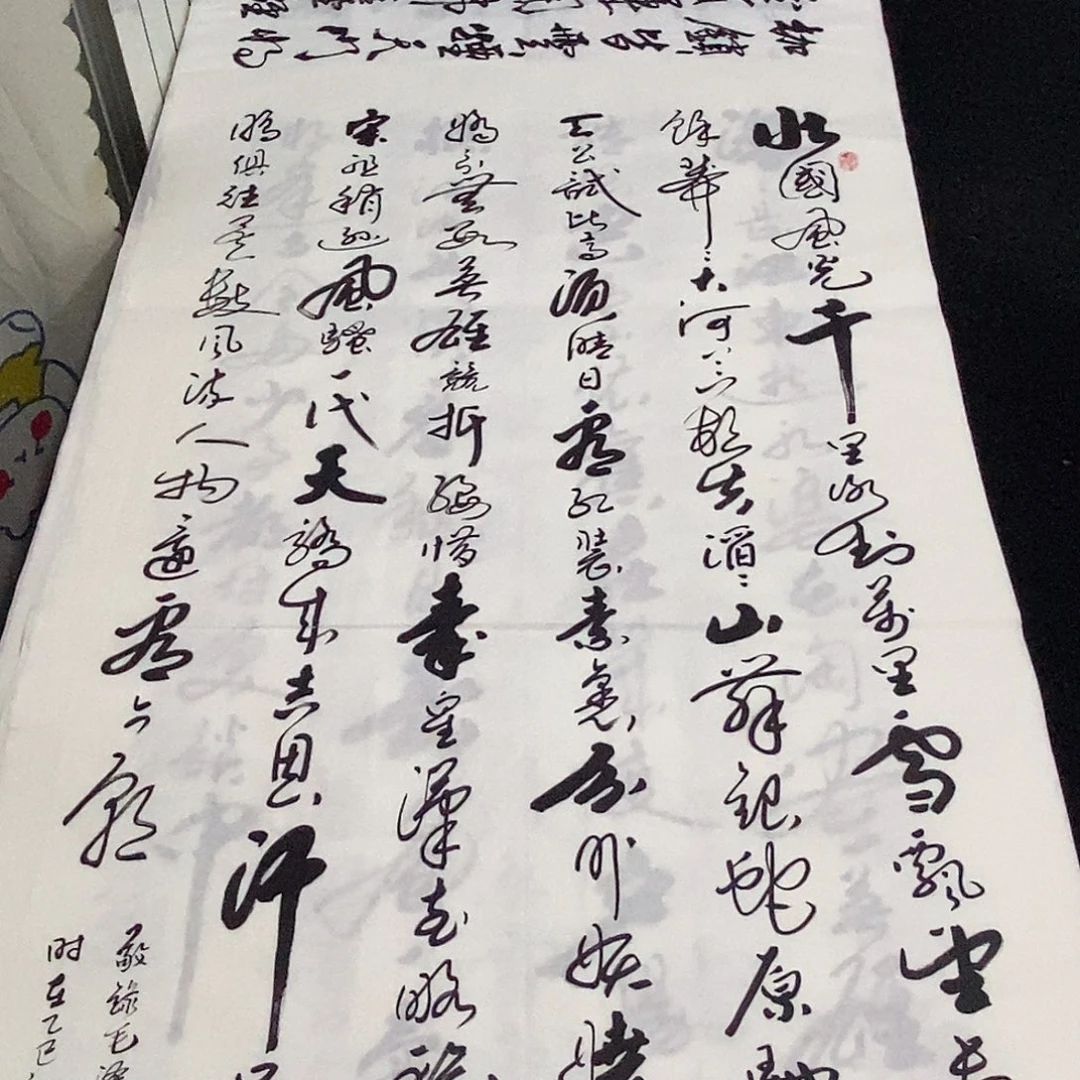 北國風光千里冰封萬里雪飄望長
餘莽〻大河上下頓失滔〻山舞銀蛇原馳
天公試比高須晴日看紅裝素裹分外妖嬈
嬌引無數英雄競折腰惜秦皇漢武略輸
宋祖稍遜風騷一代天驕成吉思汗只
鵰俱往矣數風流人物還看今朝
敬錄毛澤
时在乙巳